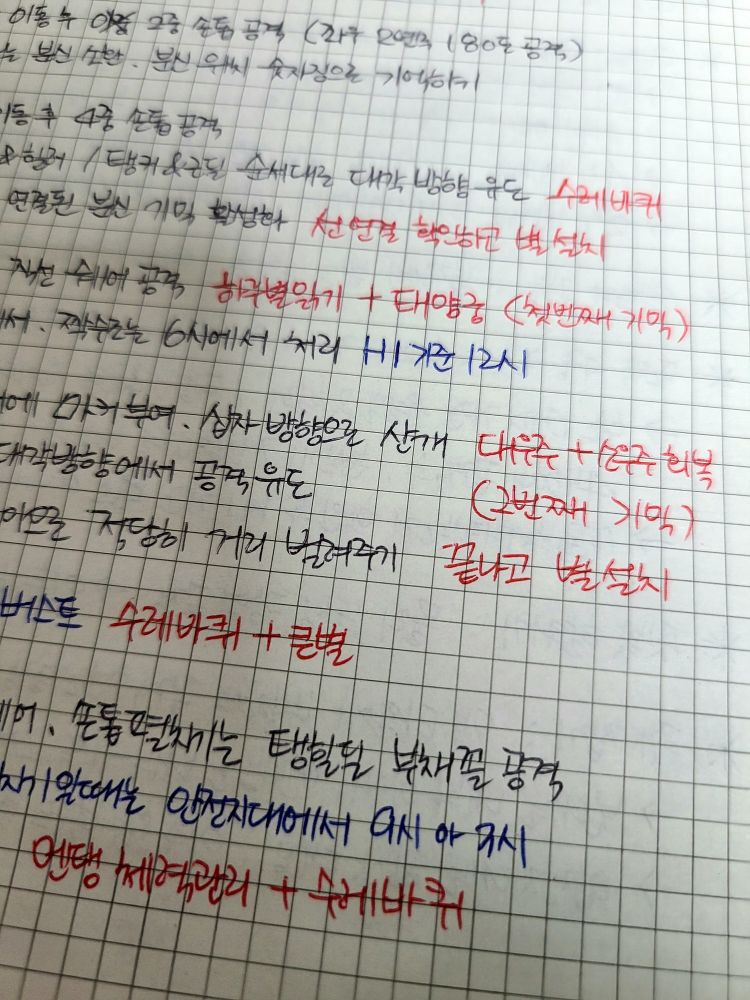 이동 후 2중 손톱 공격 (좌우 2연속 180도 공격)
는 분신 소환. 분신 위치 숫자징으로 기억하기
이동 후 4중 손톱 공격
&힐러 / 탱커&근딜 순서대로 대각 방향 유도 수레바퀴
연결된 분신 기믹 활성화 선연결 확인하고 별 설치
직선 쉐어 공격 하주별읽기 + 태양궁 (첫번째 기믹)
서. 짝수조는 6시에서 처리 H1 기준 12시
에 마커 부여. 십자 방향으로 산개 대우주 + 대우주 회복
대각방향에서 공격 유도 (2번째 기믹)
적당히 거리 벌려주기 끝나고 별 설치
버스트 수레바퀴 + 큰별
쉐어. 손톱펼치기는 탱힐딜 부채꼴 공격
안전지대에서 9시 아 3시
멘탱 체력관리 + 수레바퀴